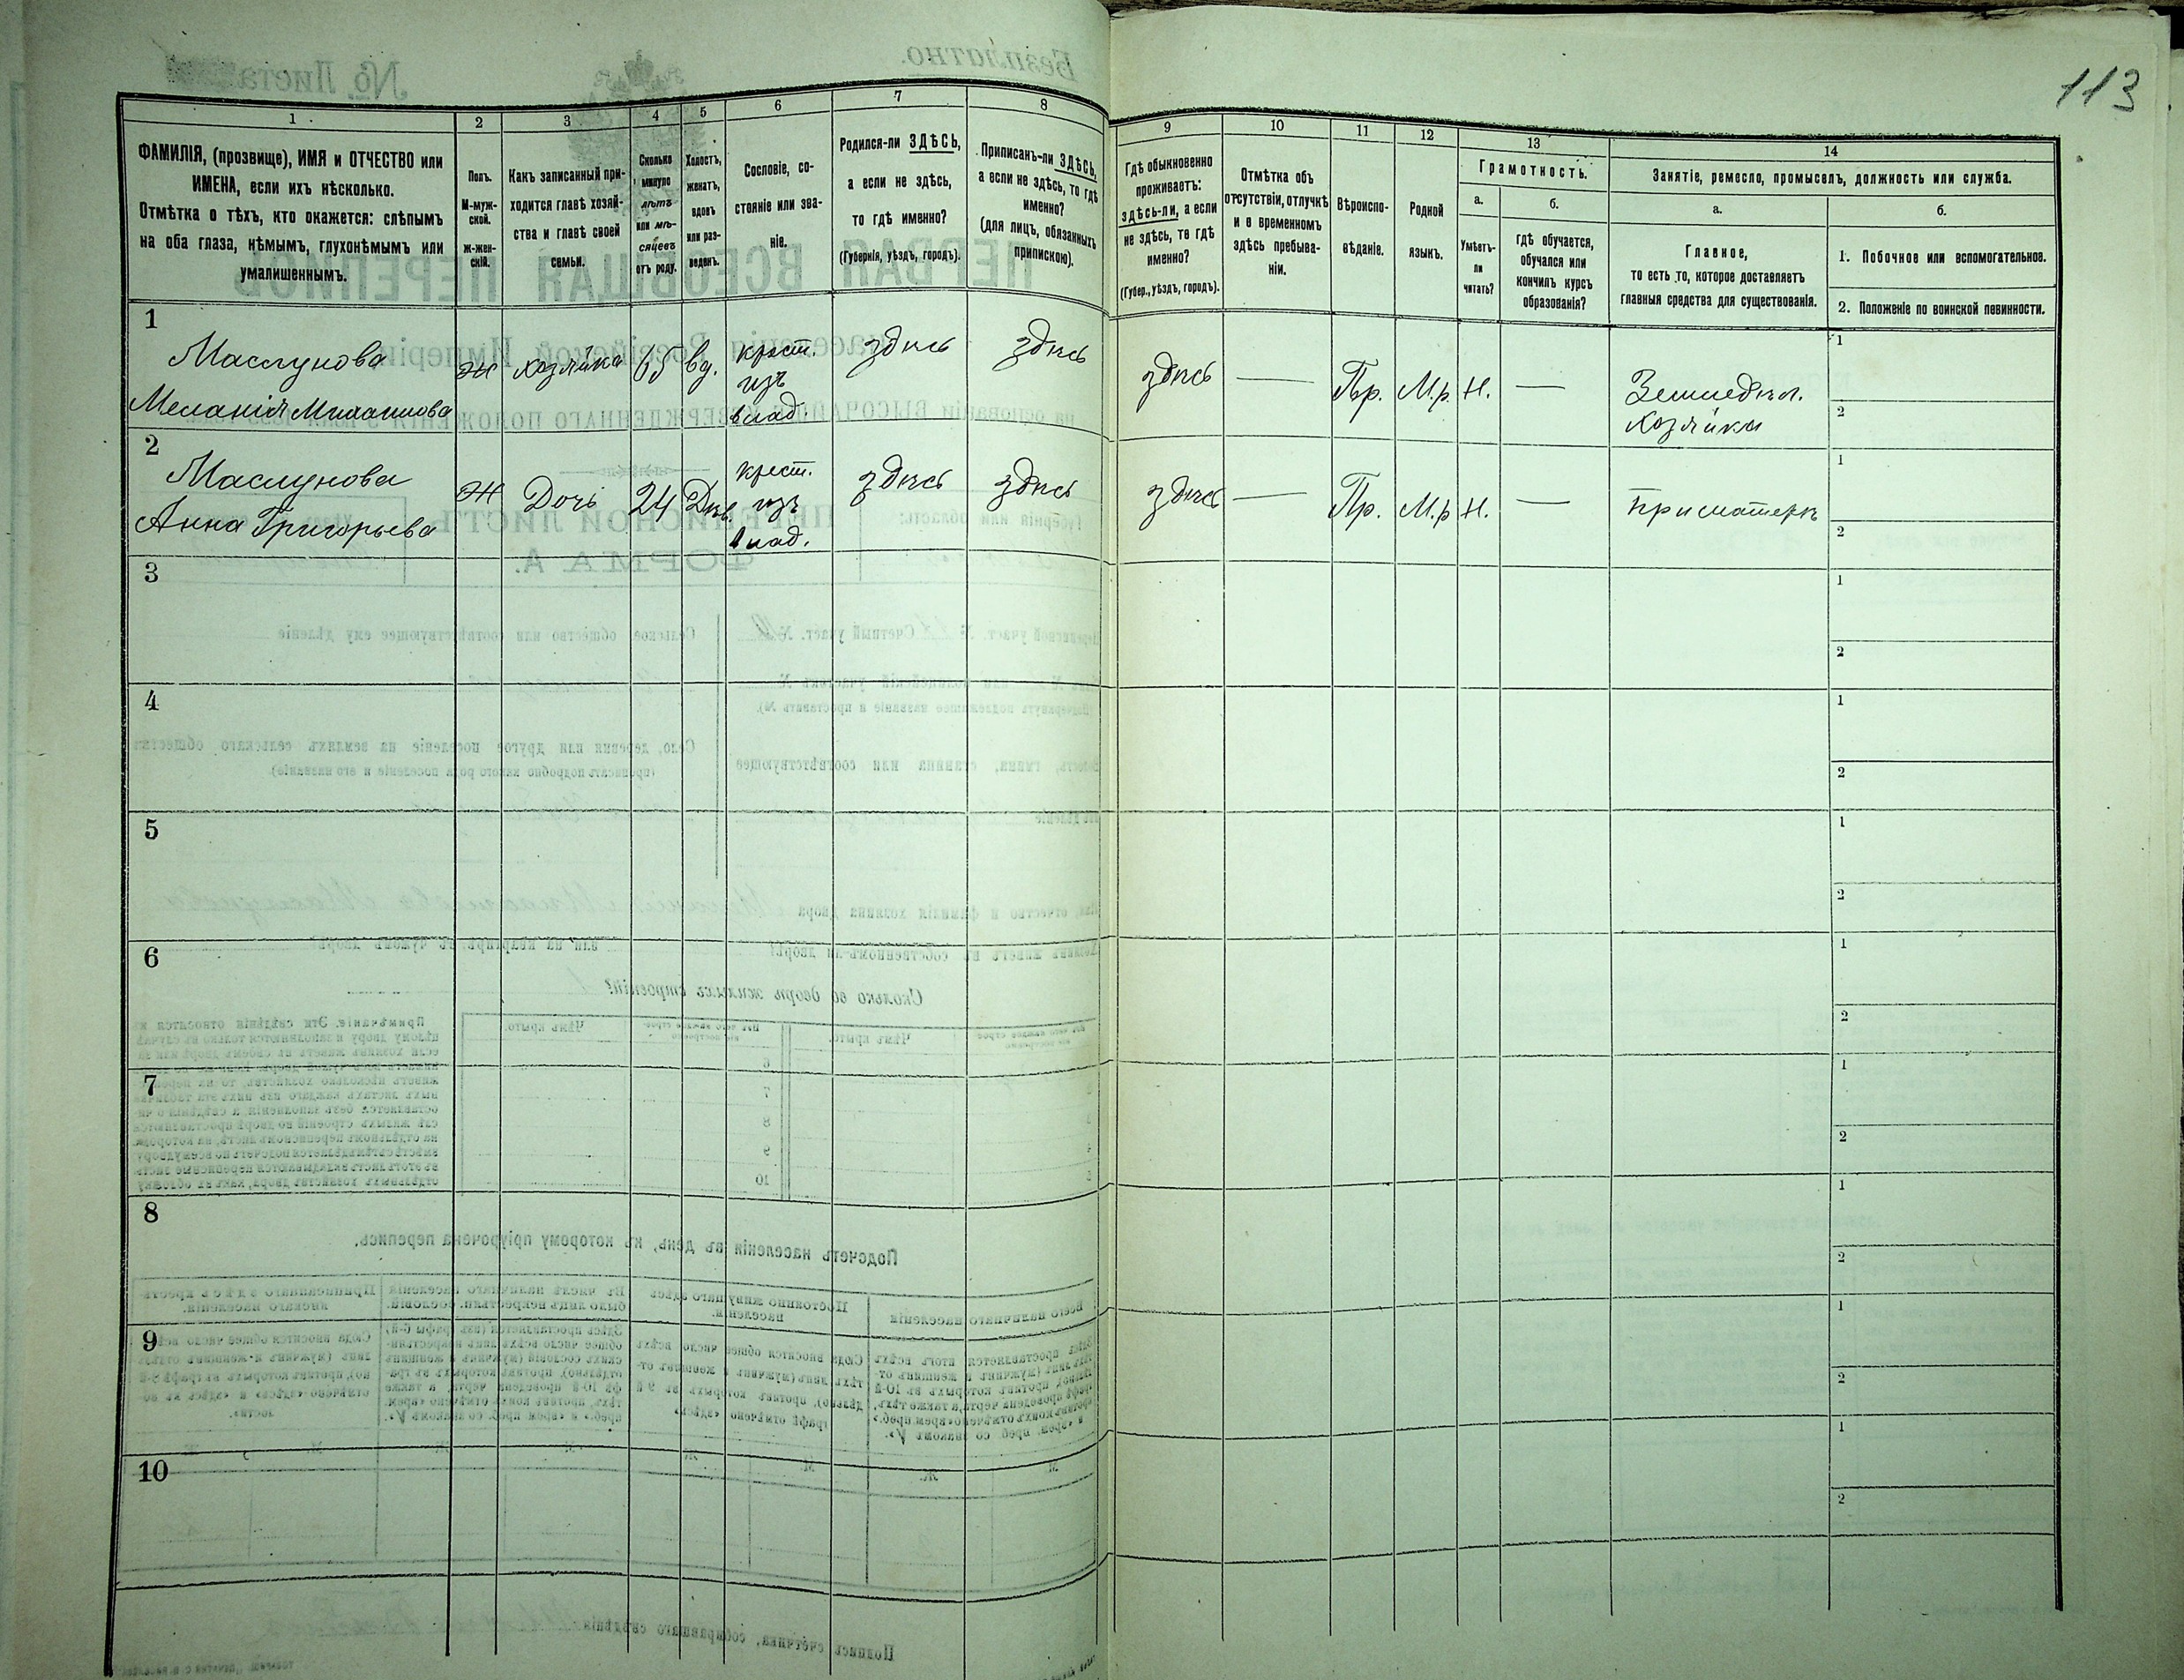 113
1
2
3
4
5
6
7
8
9
10
11
12
13
14
ФАМИЛІЯ, (прозвище), ИМЯ и ОТЧЕСТВО или
ИМЕНА, если ихъ нѣсколько.
Отмѣтка о тѣхъ, кто окажется: слѣпымъ
на оба глаза, нѣмымъ, глухонѣмымъ или
умалишеннымъ.
Полъ.
М-муж-
ской.
ж-жен-
скій.
Какъ записанный при-
ходится главѣ хозяй-
ства и главѣ своей
семьи.
Сколько
минуло
лѣтъ
или мѣ-
сяцевъ
отъ роду.
Холостъ,
женатъ,
вдовъ
или раз-
веденъ.
Сословіе, со-
стояніе или зва-
ніе.
Родился-ли ЗДѢСЬ,
а если не здѣсь,
то гдѣ именно?
(Губернія, уѣздъ, городъ).
Приписанъ-ли ЗДѢСЬ,
а если не здѣсь, то гдѣ
именно?
(для лицъ, обязанныхъ
припискою).
Гдѣ обыкновенно
проживаетъ:
здѣсь-ли, а если
не здѣсь, то гдѣ
именно?
(Губер., уѣздъ, городъ).
Отмѣтка объ
отсутствіи, отлучкѣ
и о временномъ
здѣсь пребыва-
ніи.
Вѣроиспо-
вѣданіе.
Родной
языкъ.
Грамотность.
а.
Умѣетъ-
ли
читать?
б.
гдѣ обучается,
обучался или
кончилъ курсъ
образованія?
Занятіе, ремесло, промыселъ, должность или служба.
а.
Главное,
то есть то, которое доставляетъ
главныя средства для существованія.
б.
1. Побочное или вспомогательное.
2. Положеніе по воинской повинности.
1
Маслунова
Меланія Михаилова
ж
хозяйка
65
вд.
крест.
изъ
влад.
здѣсь
здѣсь
здѣсь
—
Пр.
М.р.
Н.
—
Земледѣл.
хозяйка
1
2
2
Маслунова
Анна Григорьева
ж
Дочь
24
Дѣв.
крест.
изъ
влад.
здѣсь
здѣсь
здѣсь
—
Пр.
М.р
Н.
—
При матери
1
2
3
1
2
4
1
2
5
1
2
6
1
2
7
1
2
8
1
2
9
1
2
10
1
2